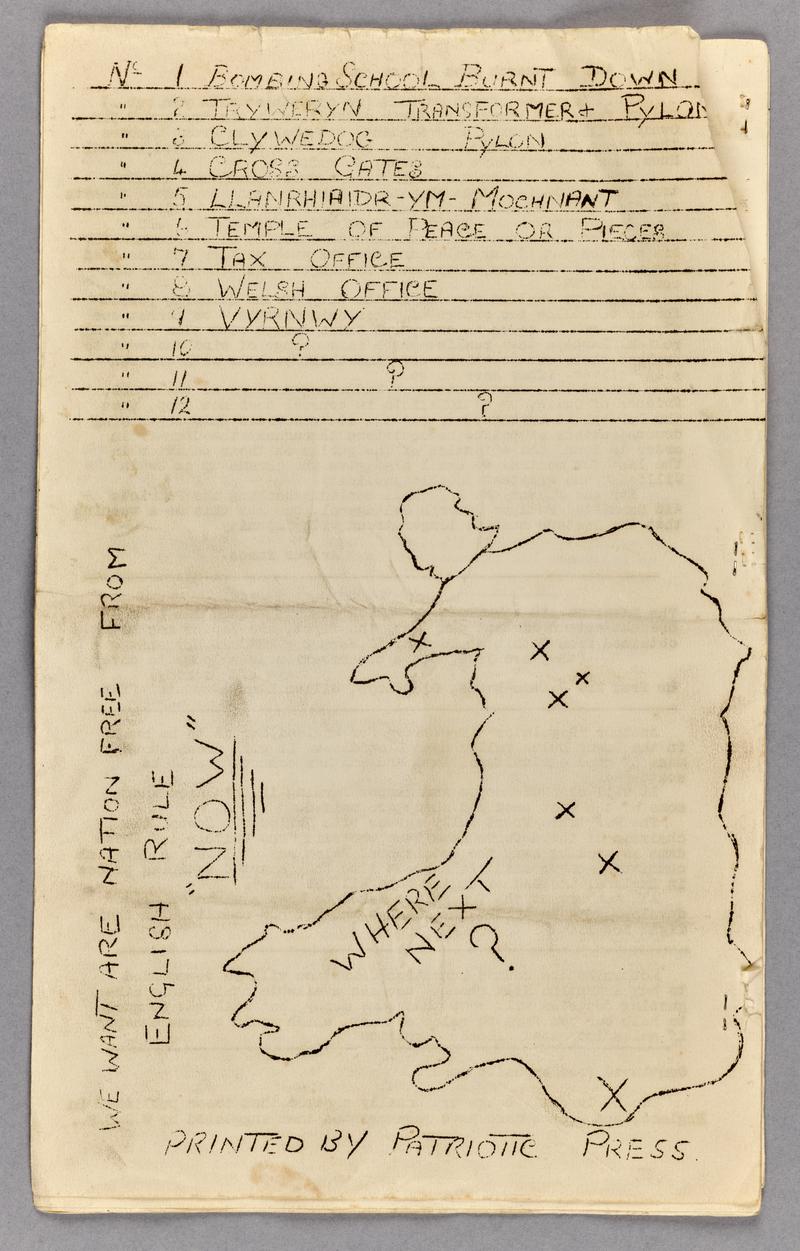 Nº 1 BOMBING SCHOOL BURNT DOWN
" 2 TRYWERYN TRANSFORMER & PYLON
" 3 CLYWEDOG PYLON
" 4 CROSS GATES
" 5 LLANRHIAIDR-YM-MOCHNANT
" 6 TEMPLE OF PEACE OR PIECES
" 7 TAX OFFICE
" 8 WELSH OFFICE
" 9 VYRNWY
" 10 ?
" 11 ?
" 12 ?
WE WANT ARE NATION FREE FROM
ENGLISH RULE
"NOW"
WHERE
NEXT
?
PRINTED BY PATRIOTIC PRESS.